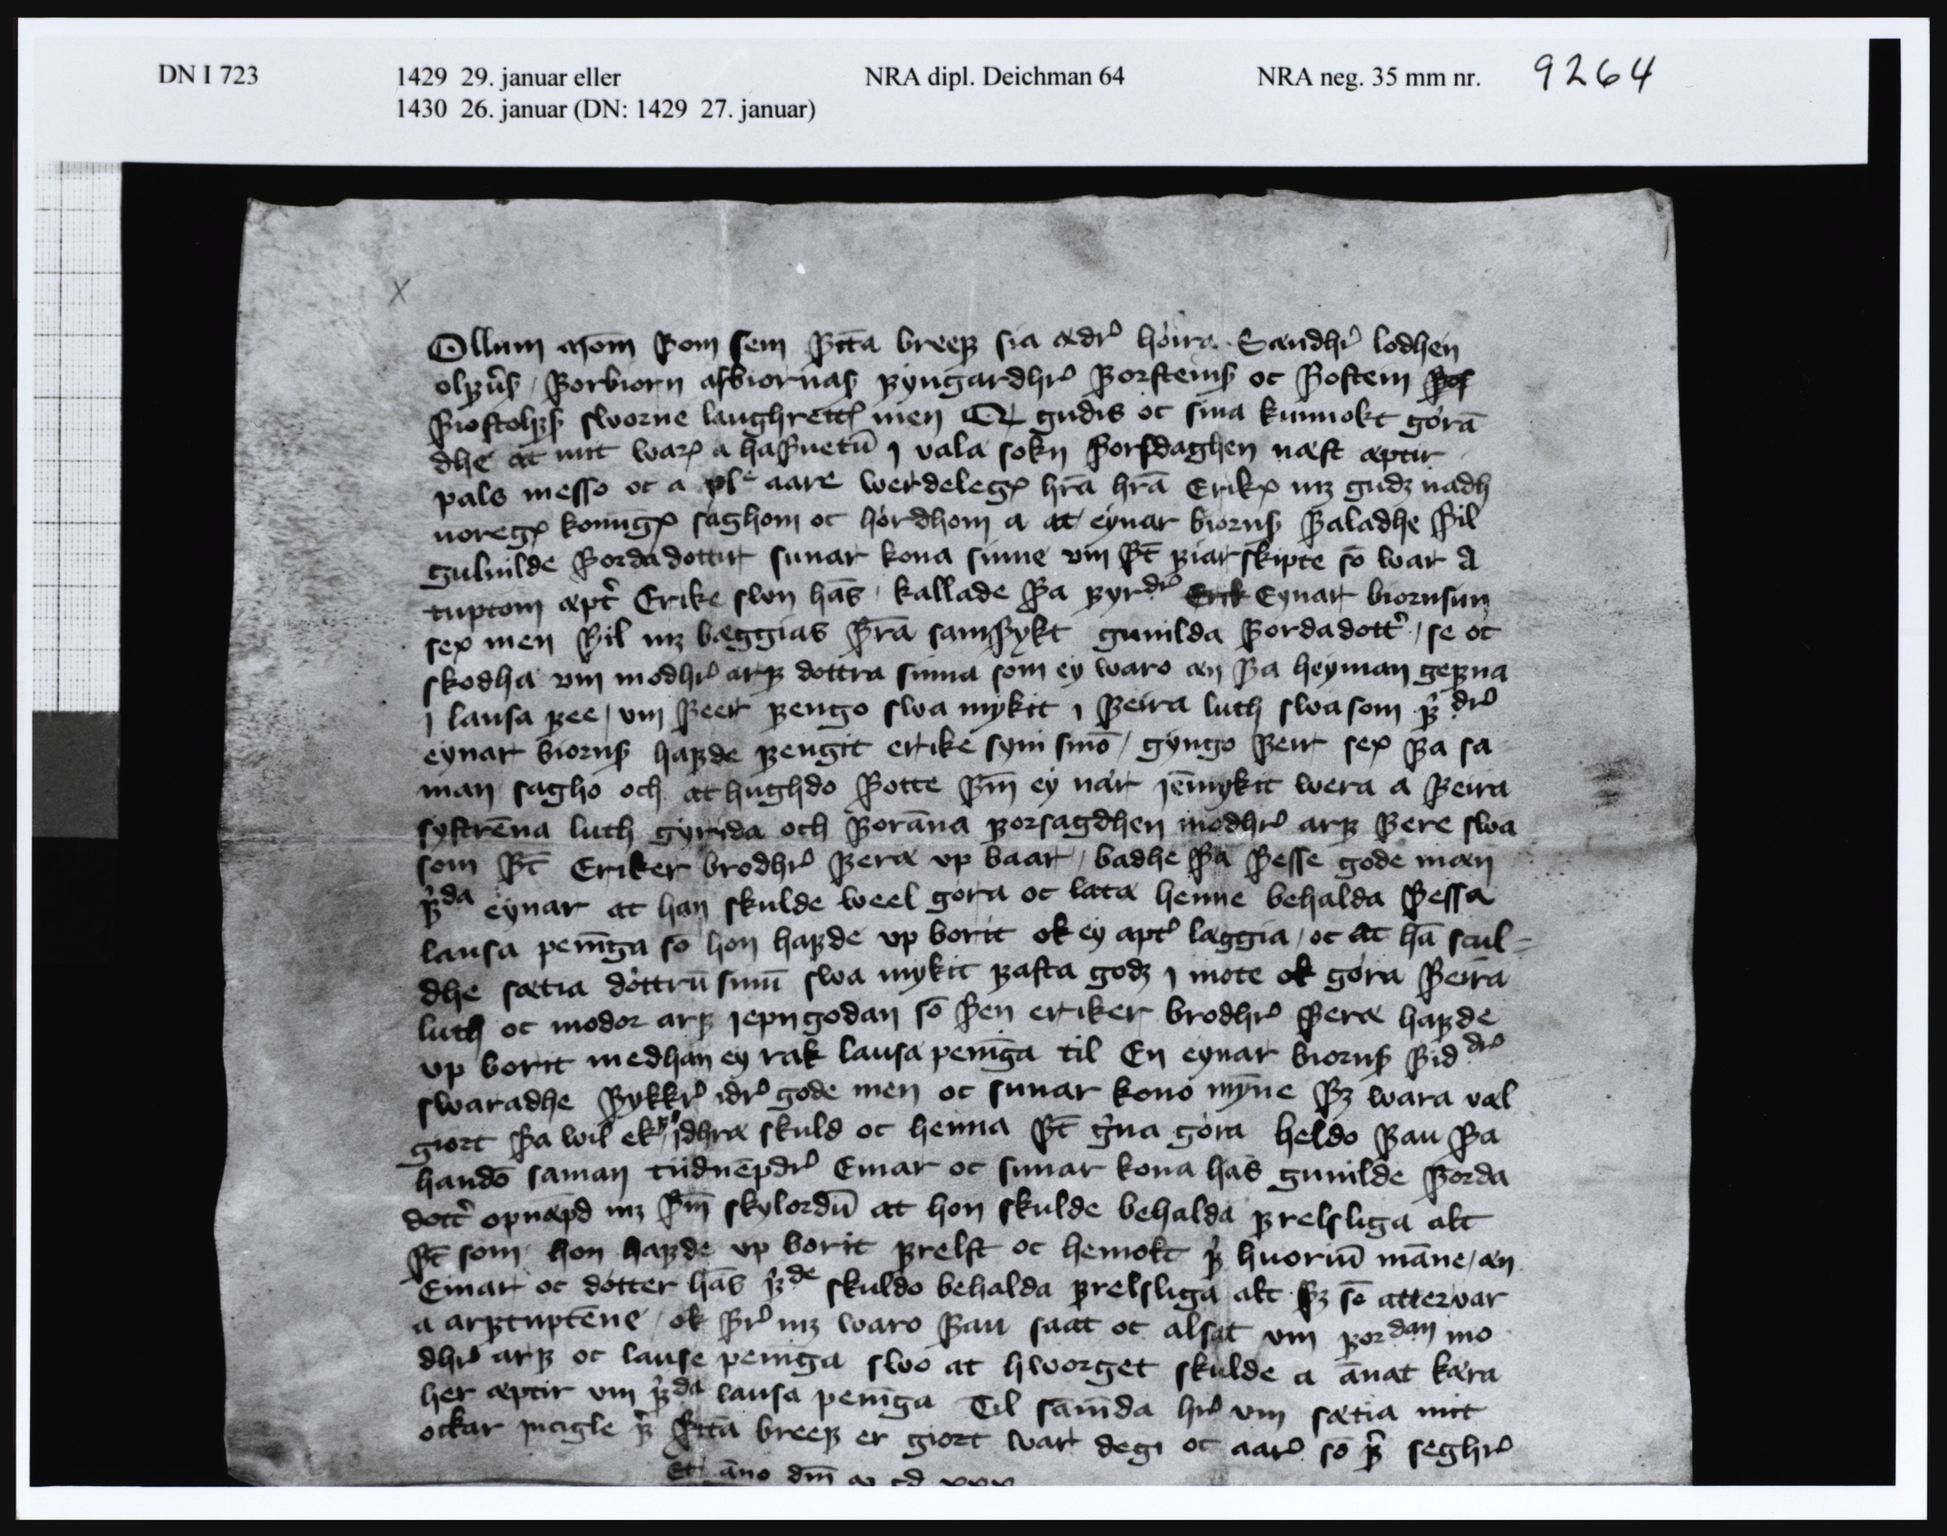 DN I 723 1429 29. januar eller NRA dipl. Deichman 64 NRA neg. 35 mm nr. 9264
1430 26. januar (DN: 1429 27. januar)
x
Ollum mōm þom sem þt̄ta breef sia ædr hóira Sændhr lodhen
olfs þorbiorn asbiornaß fyngardhr þorstenß oc þosten
þiostolfß sworne laughrettes men Q gudis oc sina kunnokt górā
dhe at mit waro a haþuetū j vala sokn þorsdaghen næst æptir
pals messo oc a aare werdelegs hr̄a hr̄a Eriks mz gudz nadh
noregs konungs saghom oc hórdhom a at eynar biornß þaladhe þil
gulnilde þordadottir sunar kona sinne vm þt̄ fiarskipte sō war A
tuptom æptr Erike swn hās kallade þa fyrdr Eynar biornsun
sex men þil mz bæggias þr̄a samþykt gunilda þordadottr se oc
skodha vm modhr arf dottra sinna som ey waro æn þa heyman gefna
j lausa fee vm þeer fengo swa mykit j þeira luth swa som fdr
eynar biornß hafde fengit erike syni sinō gyngo þeir sex þa sa
man sagho och at hughdo þotte þm̄ ey nár jēmykit wera a þeira
systrēna luth gyrida och þorāna forsagdhen modhr arf þere swa
som þt̄ Eriker brodhr þera vp baar badhe þa þesse gode mæn
fda eynar at han skulde weel góra oc lata henne behalda þessa
lausa penīga sō hon hafde vp borit ok ey aptr læggia oc at hā scul=
dhe sætia dóttrū sinū swa mykit fasta godz j mote ok góra þeira
luth oc modor arf jefngodan sō þen eriker brodhr þera hafde
vp borit medhan ey rak lausa penīga til En eynar biornß þiddr
swaradhe þykkr idr gode men oc sunar kono mȳne þz wara væl
giort þa wil ek jdhra skuld oc henna þt̄ gna góra heldo þau þa
handō saman tiidnēfdr Einar oc sunar kona hās gunilde þorda
dottr ofnæfd mz þm̄ skylordū at hon skulde behalda frelsliga alt
þt̄ som hon hafde vp borit frelst oc hemolt f huoriū māne æn
Einar oc dotter hās fde skuldo behalda frelsliga alt þz sō atter var
a arftuptēne ok þr mz waro þau saat oc alsat vm fordan mo
dhr arf oc lause penīga swo at hworget skulde a ānat kæra
her æptir vm fda lausa penīga Til sām̄da hr vm sætia mit
ockar incigle f þt̄ta breef er giort war degi oc aare sō f seghr
Et āno dm̄ cd xxx